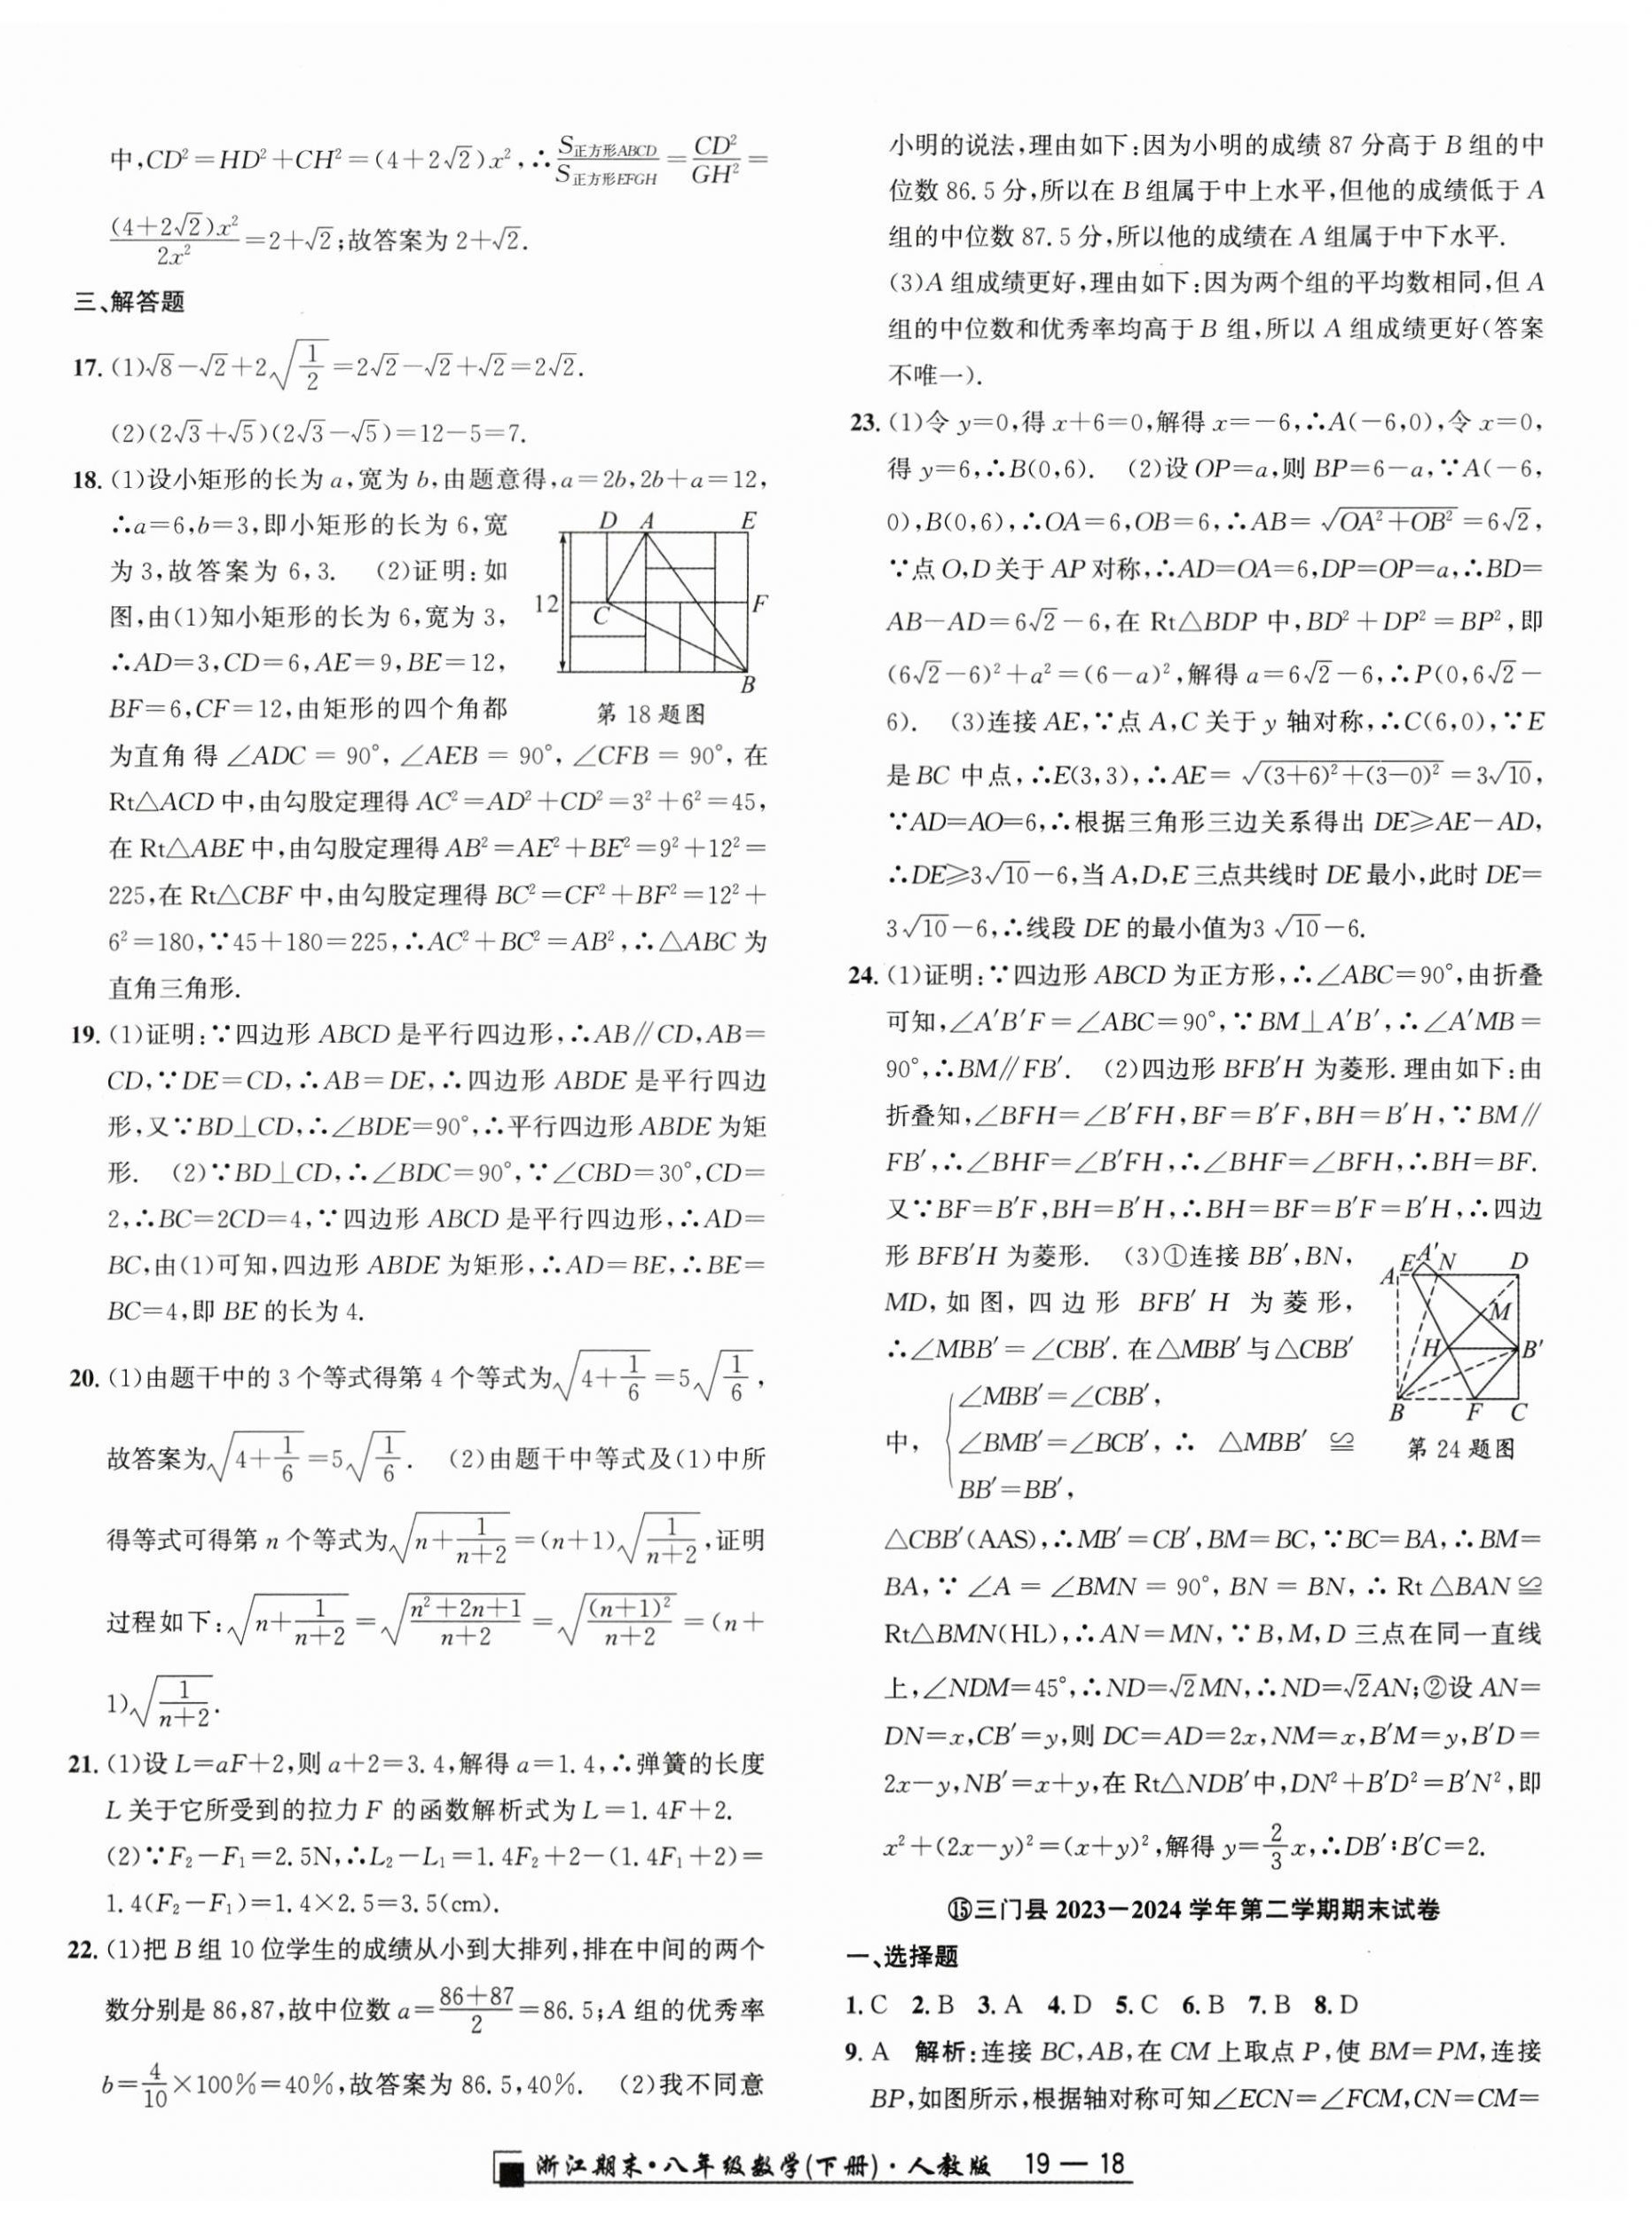 中,CD²=HD²+CH²=(4+2√2)x²,∴S正方形ABCD/S正方形EFGH=CD²/GH²=
(4+2√2)x²/2x²=2+√2;故答案为2+√2.
三、解答题
17. (1)√8-√2+2√(1/2)=2√2-√2+√2=2√2.
(2)(2√3+√5)(2√3-√5)=12-5=7.
18. (1)设小矩形的长为a,宽为b,由题意得,a=2b,2b+a=12,
∴a=6,b=3,即小矩形的长为6,宽
为3,故答案为6,3. (2)证明:如
图,由(1)知小矩形的长为6,宽为3,
∴AD=3,CD=6,AE=9,BE=12,
BF=6,CF=12,由矩形的四个角都
D A E
12 C F
B
第18题图
为直角得∠ADC=90°,∠AEB=90°,∠CFB=90°,在
Rt△ACD中,由勾股定理得AC²=AD²+CD²=3²+6²=45,
在Rt△ABE中,由勾股定理得AB²=AE²+BE²=9²+12²=
225,在Rt△CBF中,由勾股定理得BC²=CF²+BF²=12²+
6²=180,∵45+180=225,∴AC²+BC²=AB²,∴△ABC为
直角三角形.
19. (1)证明:∵四边形ABCD是平行四边形,∴AB∥CD,AB=
CD,∵DE=CD,∴AB=DE,∴四边形ABDE是平行四边
形,又∵BD⊥CD,∴∠BDE=90°,∴平行四边形ABDE为矩
形. (2)∵BD⊥CD,∴∠BDC=90°,∵∠CBD=30°,CD=
2,∴BC=2CD=4,∵四边形ABCD是平行四边形,∴AD=
BC,由(1)可知,四边形ABDE为矩形,∴AD=BE,∴BE=
BC=4,即BE的长为4.
20. (1)由题干中的3个等式得第4个等式为√(4+1/6)=5√(1/6),
故答案为√(4+1/6)=5√(1/6). (2)由题干中等式及(1)中所
得等式可得第n个等式为√(n+1/(n+2))=(n+1)√(1/(n+2)),证明
过程如下:√(n+1/(n+2))=√((n²+2n+1)/(n+2))=√((n+1)²/(n+2))=(n+
1)√(1/(n+2)).
21. (1)设L=aF+2,则a+2=3.4,解得a=1.4,∴弹簧的长度
L关于它所受到的拉力F的函数解析式为L=1.4F+2.
(2)∵F₂-F₁=2.5N,∴L₂-L₁=1.4F₂+2-(1.4F₁+2)=
1.4(F₂-F₁)=1.4×2.5=3.5(cm).
22. (1)把B组10位学生的成绩从小到大排列,排在中间的两个
数分别是86,87,故中位数a=(86+87)/2=86.5;A组的优秀率
b=4/10×100%=40%,故答案为86.5,40%. (2)我不同意
小明的说法,理由如下:因为小明的成绩87分高于B组的中
位数86.5分,所以在B组属于中上水平,但他的成绩低于A
组的中位数87.5分,所以他的成绩在A组属于中下水平.
(3)A组成绩更好,理由如下:因为两个组的平均数相同,但A
组的中位数和优秀率均高于B组,所以A组成绩更好(答案
不唯一).
23. (1)令y=0,得x+6=0,解得x=-6,∴A(-6,0),令x=0,
得y=6,∴B(0,6). (2)设OP=a,则BP=6-a,∵A(-6,
0),B(0,6),∴OA=6,OB=6,∴AB=√(OA²+OB²)=6√2,
∵点O,D关于AP对称,∴AD=OA=6,DP=OP=a,∴BD=
AB-AD=6√2-6,在Rt△BDP中,BD²+DP²=BP²,即
(6√2-6)²+a²=(6-a)²,解得a=6√2-6,∴P(0,6√2-
6). (3)连接AE,∵点A,C关于y轴对称,∴C(6,0),∵E
是BC中点,∴E(3,3),∴AE=√((3+6)²+(3-0)²)=3√10,
∵AD=AO=6,∴根据三角形三边关系得出DE≥AE-AD,
∴DE≥3√10-6,当A,D,E三点共线时DE最小,此时DE=
3√10-6,∴线段DE的最小值为3√10-6.
24. (1)证明:∵四边形ABCD为正方形,∴∠ABC=90°,由折叠
可知,∠A′B′F=∠ABC=90°,∵BM⊥A′B′,∴∠A′MB=
90°,∴BM∥FB′. (2)四边形BFB′H为菱形.理由如下:由
折叠知,∠BFH=∠B′FH,BF=B′F,BH=B′H,∵BM∥
FB′,∴∠BHF=∠B′FH,∴∠BHF=∠BFH,∴BH=BF.
又∵BF=B′F,BH=B′H,∴BH=BF=B′F=B′H,∴四边
形BFB′H为菱形. (3)①连接BB′,BN,
MD,如图,四边形BFB′H为菱形,
∴∠MBB′=∠CBB′.在△MBB′与△CBB′
中,{∠MBB′=∠CBB′,
∠BMB′=∠BCB′,∴△MBB′≌
BB′=BB′,
A E A′ N D
M
H B′
B F C
第24题图
△CBB′(AAS),∴MB′=CB′,BM=BC,∵BC=BA,∴BM=
BA,∵∠A=∠BMN=90°,BN=BN,∴Rt△BAN≌
Rt△BMN(HL),∴AN=MN,∵B,M,D三点在同一直线
上,∠NDM=45°,∴ND=√2MN,∴ND=√2AN;②设AN=
DN=x,CB′=y,则DC=AD=2x,NM=x,B′M=y,B′D=
2x-y,NB′=x+y,在Rt△NDB′中,DN²+B′D²=B′N²,即
x²+(2x-y)²=(x+y)²,解得y=2/3x,∴DB′∶B′C=2.
⑮三门县2023-2024学年第二学期期末试卷
一、选择题
1. C 2. B 3. A 4. D 5. C 6. B 7. B 8. D
9. A 解析:连接BC,AB,在CM上取点P,使BM=PM,连接
BP,如图所示,根据轴对称可知∠ECN=∠FCM,CN=CM=
浙江期末·八年级数学(下册)·人教版 19—18